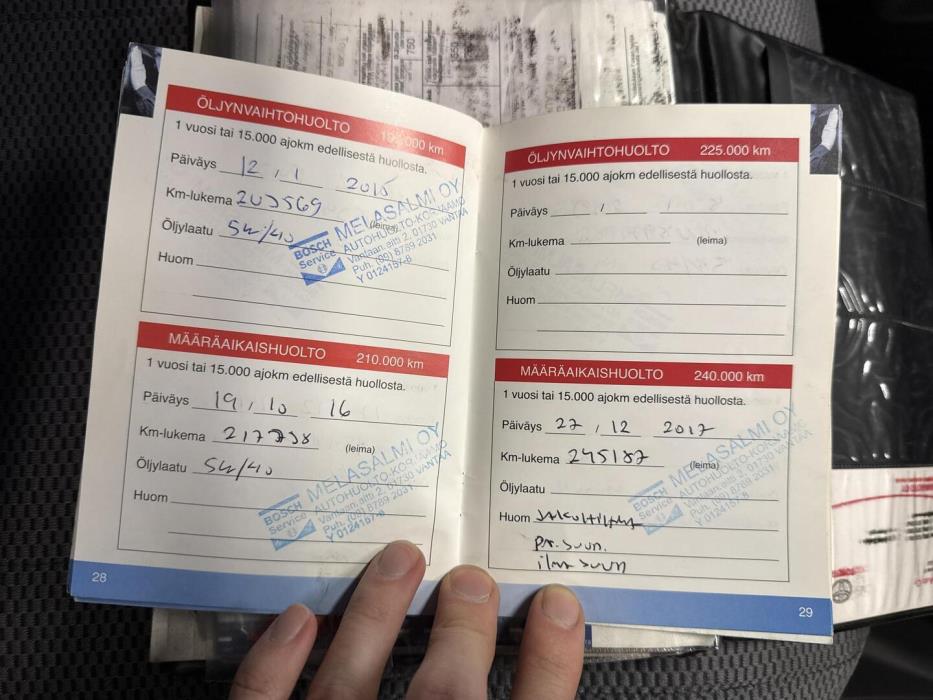 ÖLJYNVAIHTOHUOLTO 195.000 km
1 vuosi tai 15.000 ajokm edellisestä huollosta.
Päiväys 12 , 1 2015
Km-lukema 203569 (leima)
Öljylaatu 5w/40
Huom
BOSCH Service
MELASALMI OY
AUTOHUOLTO-KORJAAMO
Vantaan aitti 2, 01730 VANTAA
Puh. (09) 8789 2031
Y 0124157-8
MÄÄRÄAIKAISHUOLTO 210.000 km
1 vuosi tai 15.000 ajokm edellisestä huollosta.
Päiväys 19 , 10 16
Km-lukema 217738 (leima)
Öljylaatu 5w/40
Huom
BOSCH Service
MELASALMI OY
AUTOHUOLTO-KORJAAMO
Vantaan aitti 2, 01730 VANTAA
Puh. (09) 8789 2031
Y 0124157-8
28
ÖLJYNVAIHTOHUOLTO 225.000 km
1 vuosi tai 15.000 ajokm edellisestä huollosta.
Päiväys / /
Km-lukema (leima)
Öljylaatu
Huom
MÄÄRÄAIKAISHUOLTO 240.000 km
1 vuosi tai 15.000 ajokm edellisestä huollosta.
Päiväys 27 , 12 2017
Km-lukema 245187 (leima)
Öljylaatu
Huom
pa.suun.
ilm suun
BOSCH Service
MELASALMI OY
AUTOHUOLTO-KORJAAMO
29